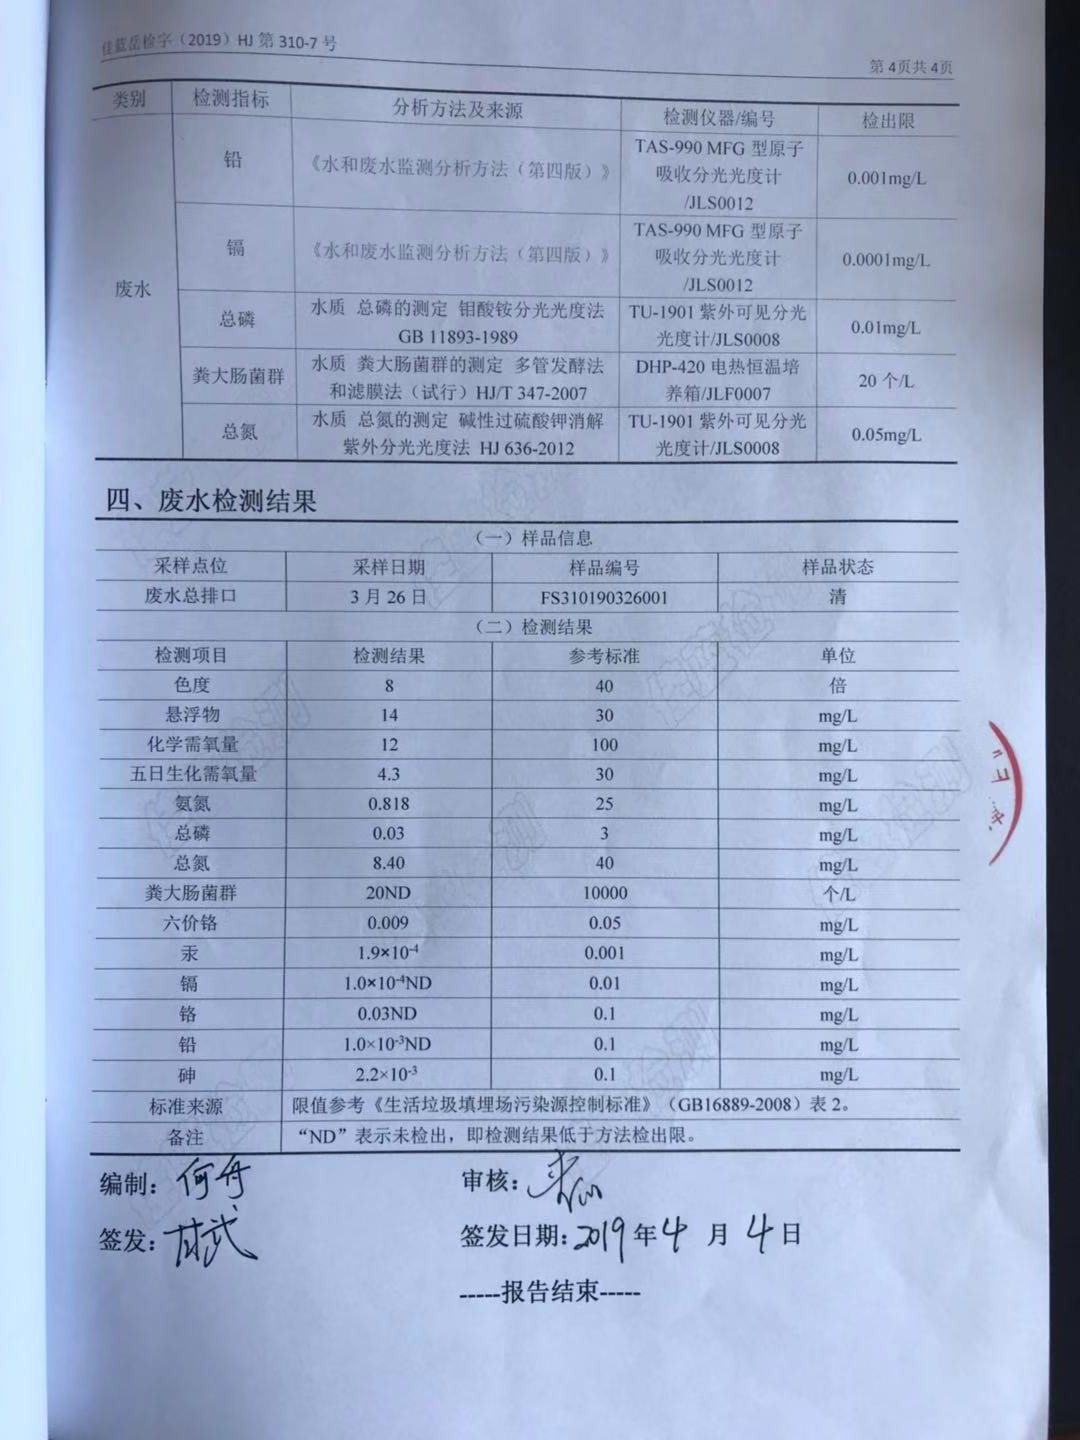 佳蓝岳检字（2019）HJ 第 310-7 号
第 4页共 4页
类别 检测指标 分析方法及来源 检测仪器/编号 检出限
废水
铅 《水和废水监测分析方法（第四版）》 TAS-990 MFG 型原子
吸收分光光度计
/JLS0012 0.001mg/L
镉 《水和废水监测分析方法（第四版）》 TAS-990 MFG 型原子
吸收分光光度计
/JLS0012 0.0001mg/L
总磷 水质 总磷的测定 钼酸铵分光光度法
GB 11893-1989 TU-1901 紫外可见分光
光度计/JLS0008 0.01mg/L
粪大肠菌群 水质 粪大肠菌群的测定 多管发酵法
和滤膜法（试行）HJ/T 347-2007 DHP-420 电热恒温培
养箱/JLF0007 20 个/L
总氮 水质 总氮的测定 碱性过硫酸钾消解
紫外分光光度法 HJ 636-2012 TU-1901 紫外可见分光
光度计/JLS0008 0.05mg/L
四、废水检测结果
（一）样品信息
采样点位 采样日期 样品编号 样品状态
废水总排口 3 月 26 日 FS310190326001 清
（二）检测结果
检测项目 检测结果 参考标准 单位
色度 8 40 倍
悬浮物 14 30 mg/L
化学需氧量 12 100 mg/L
五日生化需氧量 4.3 30 mg/L
氨氮 0.818 25 mg/L
总磷 0.03 3 mg/L
总氮 8.40 40 mg/L
粪大肠菌群 20ND 10000 个/L
六价铬 0.009 0.05 mg/L
汞 1.9×10⁻⁴ 0.001 mg/L
镉 1.0×10⁻⁴ND 0.01 mg/L
铬 0.03ND 0.1 mg/L
铅 1.0×10⁻³ND 0.1 mg/L
砷 2.2×10⁻³ 0.1 mg/L
标准来源 限值参考《生活垃圾填埋场污染源控制标准》（GB16889-2008）表 2。
备注 “ND”表示未检出，即检测结果低于方法检出限。
编制：何舟 审核：
签发：甘武 签发日期：2019年4月4日
-----报告结束-----